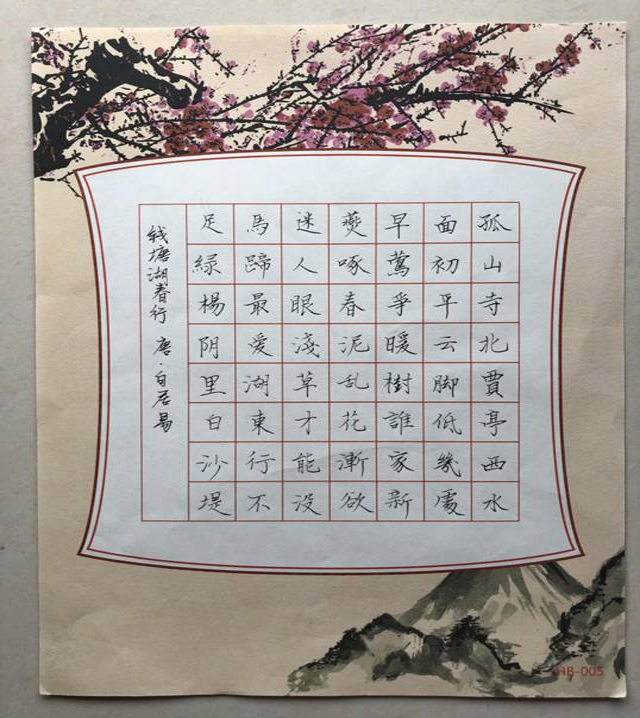 孤山寺北賈亭西水
面初平云脚低幾處
早鶯爭暖樹誰家新
燕啄春泥乱花漸欲
迷人眼淺草才能没
馬蹄最愛湖東行不
足緑楊阴里白沙堤
钱塘湖春行 唐·白居易
HB-005